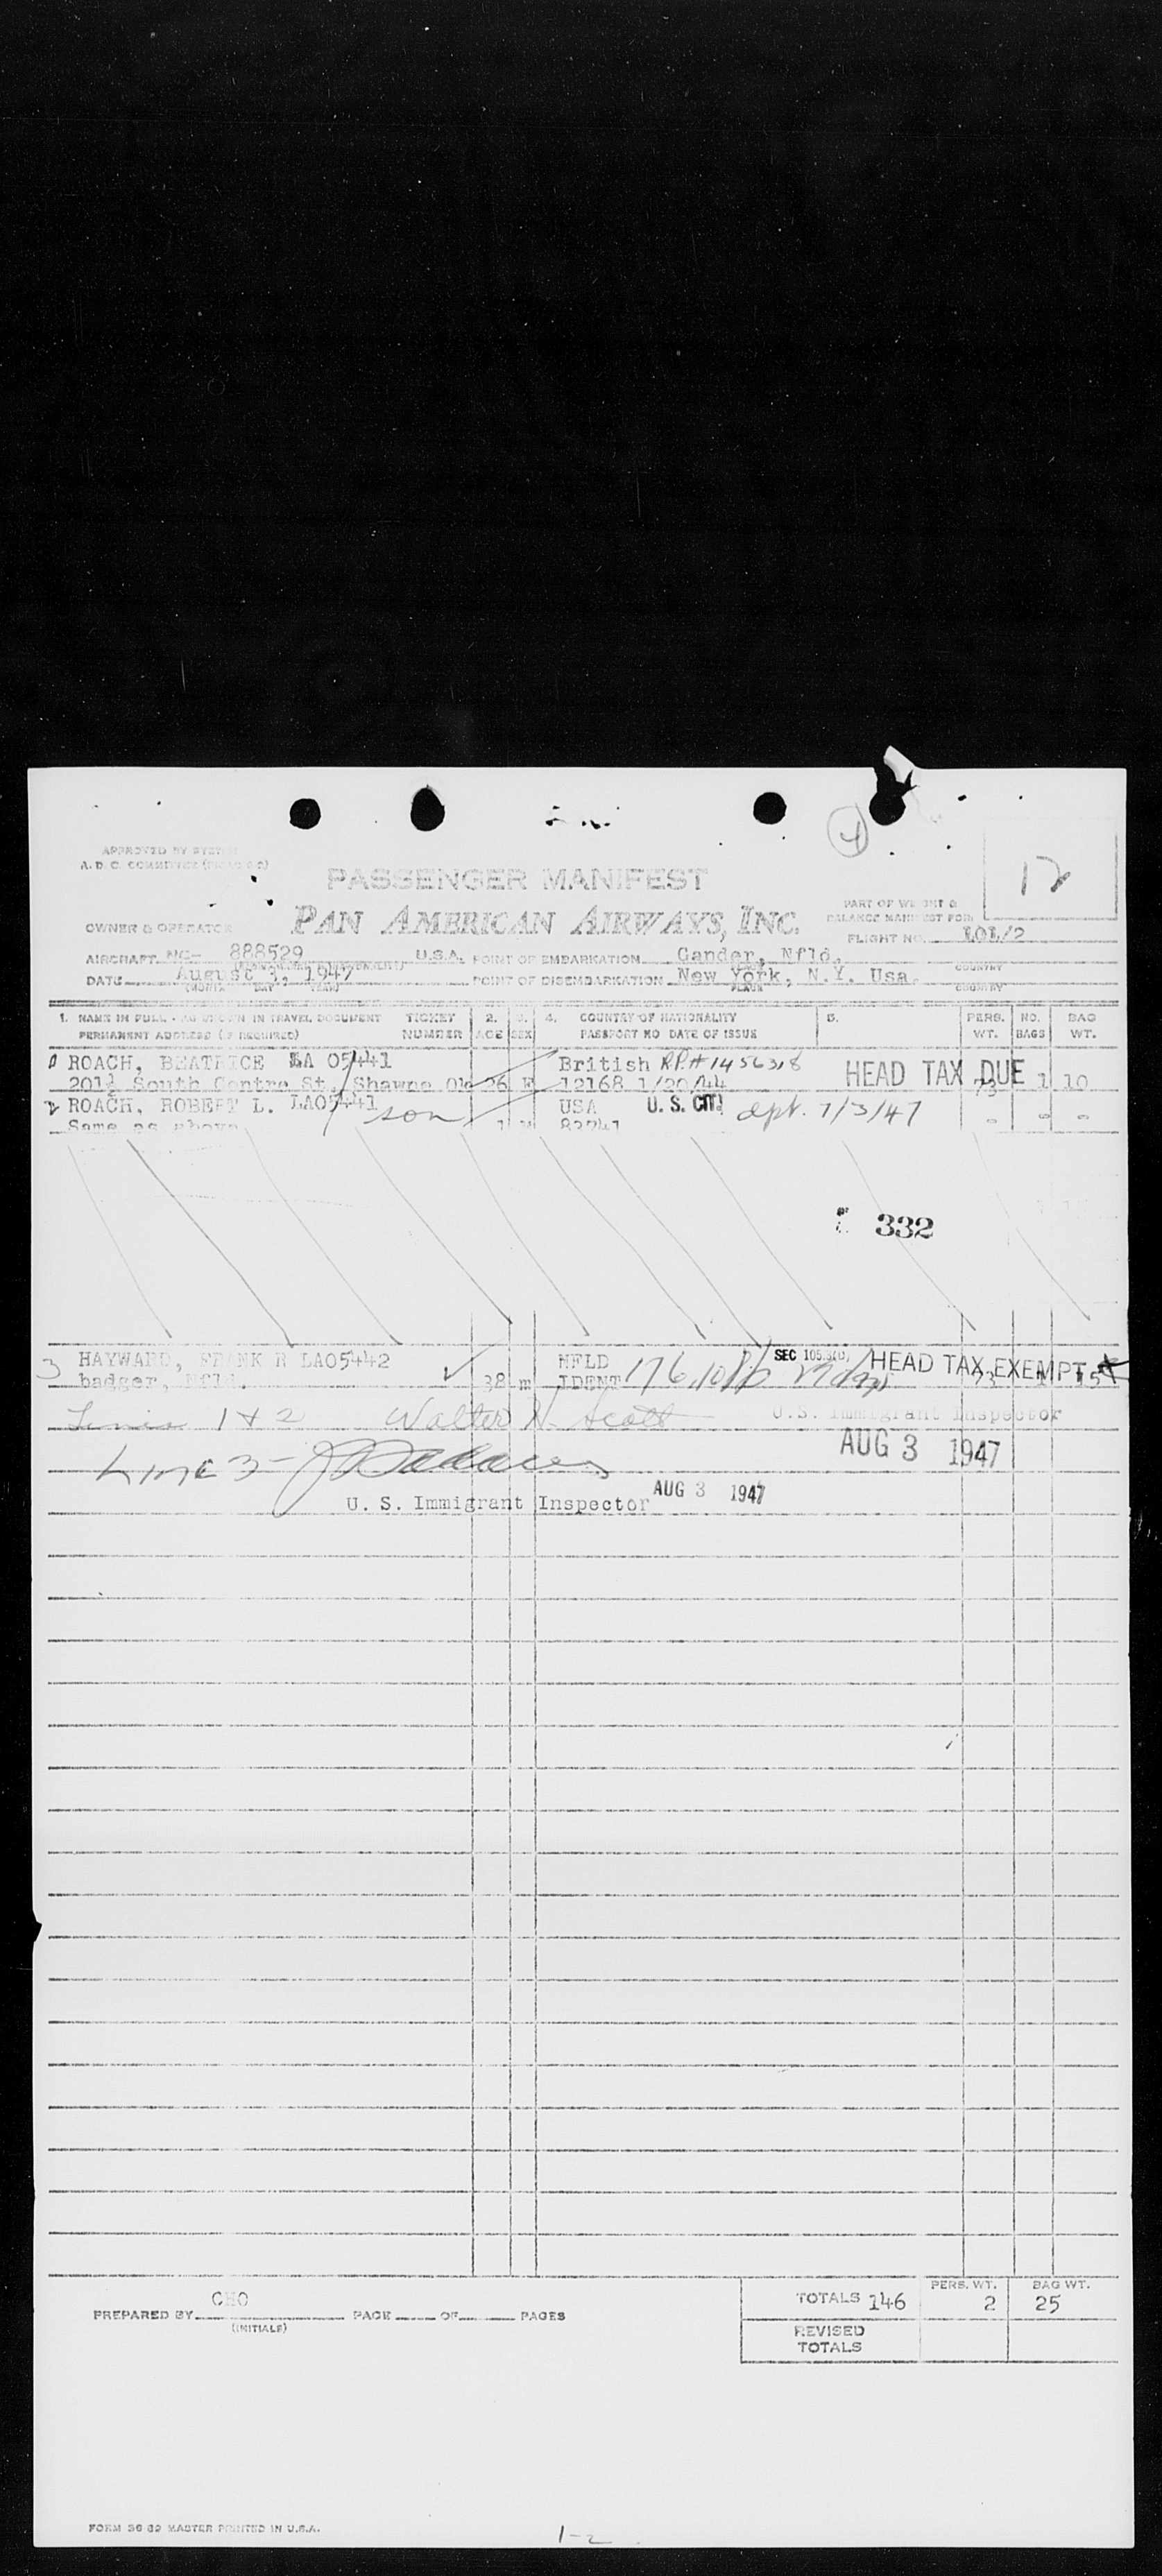 4
12
APPROVED BY
A. D. C. COMMITTEE
PASSENGER MANIFEST
PAN AMERICAN AIRWAYS, INC.
PART OF WEIGHT &
BALANCE MANIFEST FOR
OWNER & OPERATOR
FLIGHT NO. 101/2
AIRCRAFT NC- 888529 U.S.A. POINT OF EMBARKATION Gander, Nfld.
COUNTRY
DATE August 3, 1947 POINT OF DISEMBARKATION New York, N.Y. Usa.
(MONTH DAY YEAR) PLACE COUNTRY
1. NAME IN FULL - AS SHOWN IN TRAVEL DOCUMENT TICKET 2. 3. 4. COUNTRY OF NATIONALITY 5. PERS. NO. BAG
PERMANENT ADDRESS (IF REQUIRED) NUMBER AGE SEX PASSPORT NO DATE OF ISSUE WT. BAGS WT.
ROACH, BEATRICE LA 05441 British R.P.# 1456318 HEAD TAX DUE
201½ South Centre St. Shawne Ok 26 F 12168 1/20/44 73 1 10
2 ROACH, ROBERT L. LA05441 son USA U. S. CIT. dpt. 7/3/47
Same as above 1 M 82741 - - -
332
3 HAYWARD, FRANK R LA05442 NFLD SEC HEAD TAX EXEMPT
badger, Nfld. 38 m IDENT 73
Lines 1 & 2 Walter H. Scott U.S. Immigrant Inspector
AUG 3 1947
LINE 3-
U. S. Immigrant Inspector AUG 3 1947
PERS. WT. BAG WT.
CHO TOTALS 146 2 25
PREPARED BY PAGE OF PAGES
(INITIALS) REVISED
TOTALS
FORM MASTER PRINTED IN U.S.A.
1-2